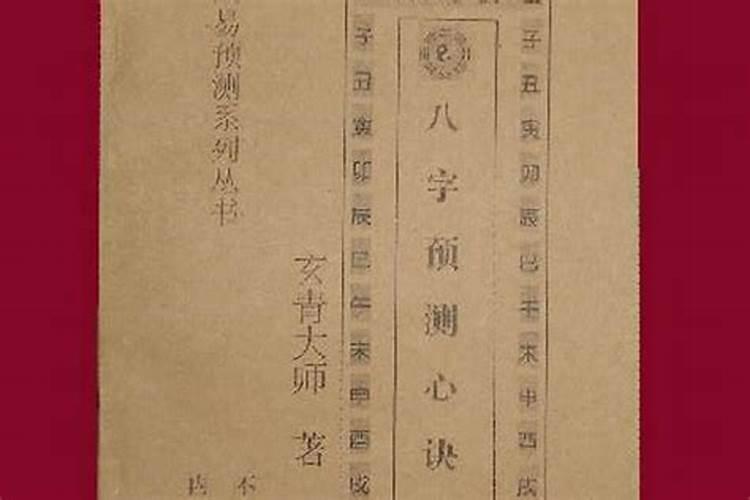 八字预测心诀
子丑寅卯辰巳午未申酉戌
子丑寅卯辰巳午未申酉戌
玄青大师 著
易预测系列丛书